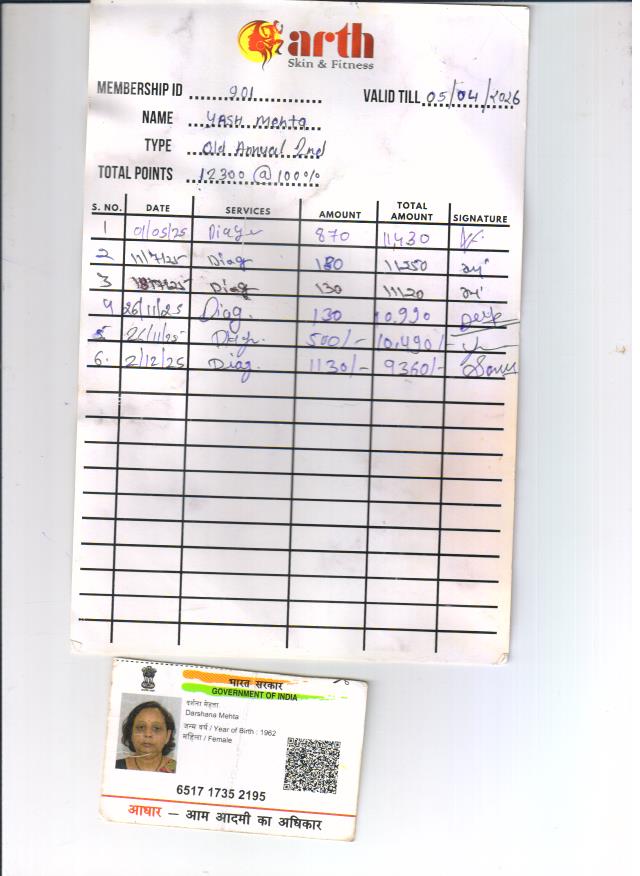 arth
Skin & Fitness
MEMBERSHIP ID 901 VALID TILL 05/04/2026
NAME YASH Mehta
TYPE Old Annual 2nd
TOTAL POINTS 12300 @ 100%
S. NO. DATE SERVICES AMOUNT TOTAL AMOUNT SIGNATURE
1 01/05/25 870 11,430
2 11/7/25 Diag 180 11250
3 Diag 130 11120
4 26/11/25 Diag. 130 10,990
5 26/11/25 500/- 10,490/-
6. 2/12/25 Diag. 1130/- 9360/-
भारत सरकार
GOVERNMENT OF INDIA
दर्शना मेहता
Darshana Mehta
जन्म वर्ष / Year of Birth : 1962
महिला / Female
6517 1735 2195
आधार – आम आदमी का अधिकार